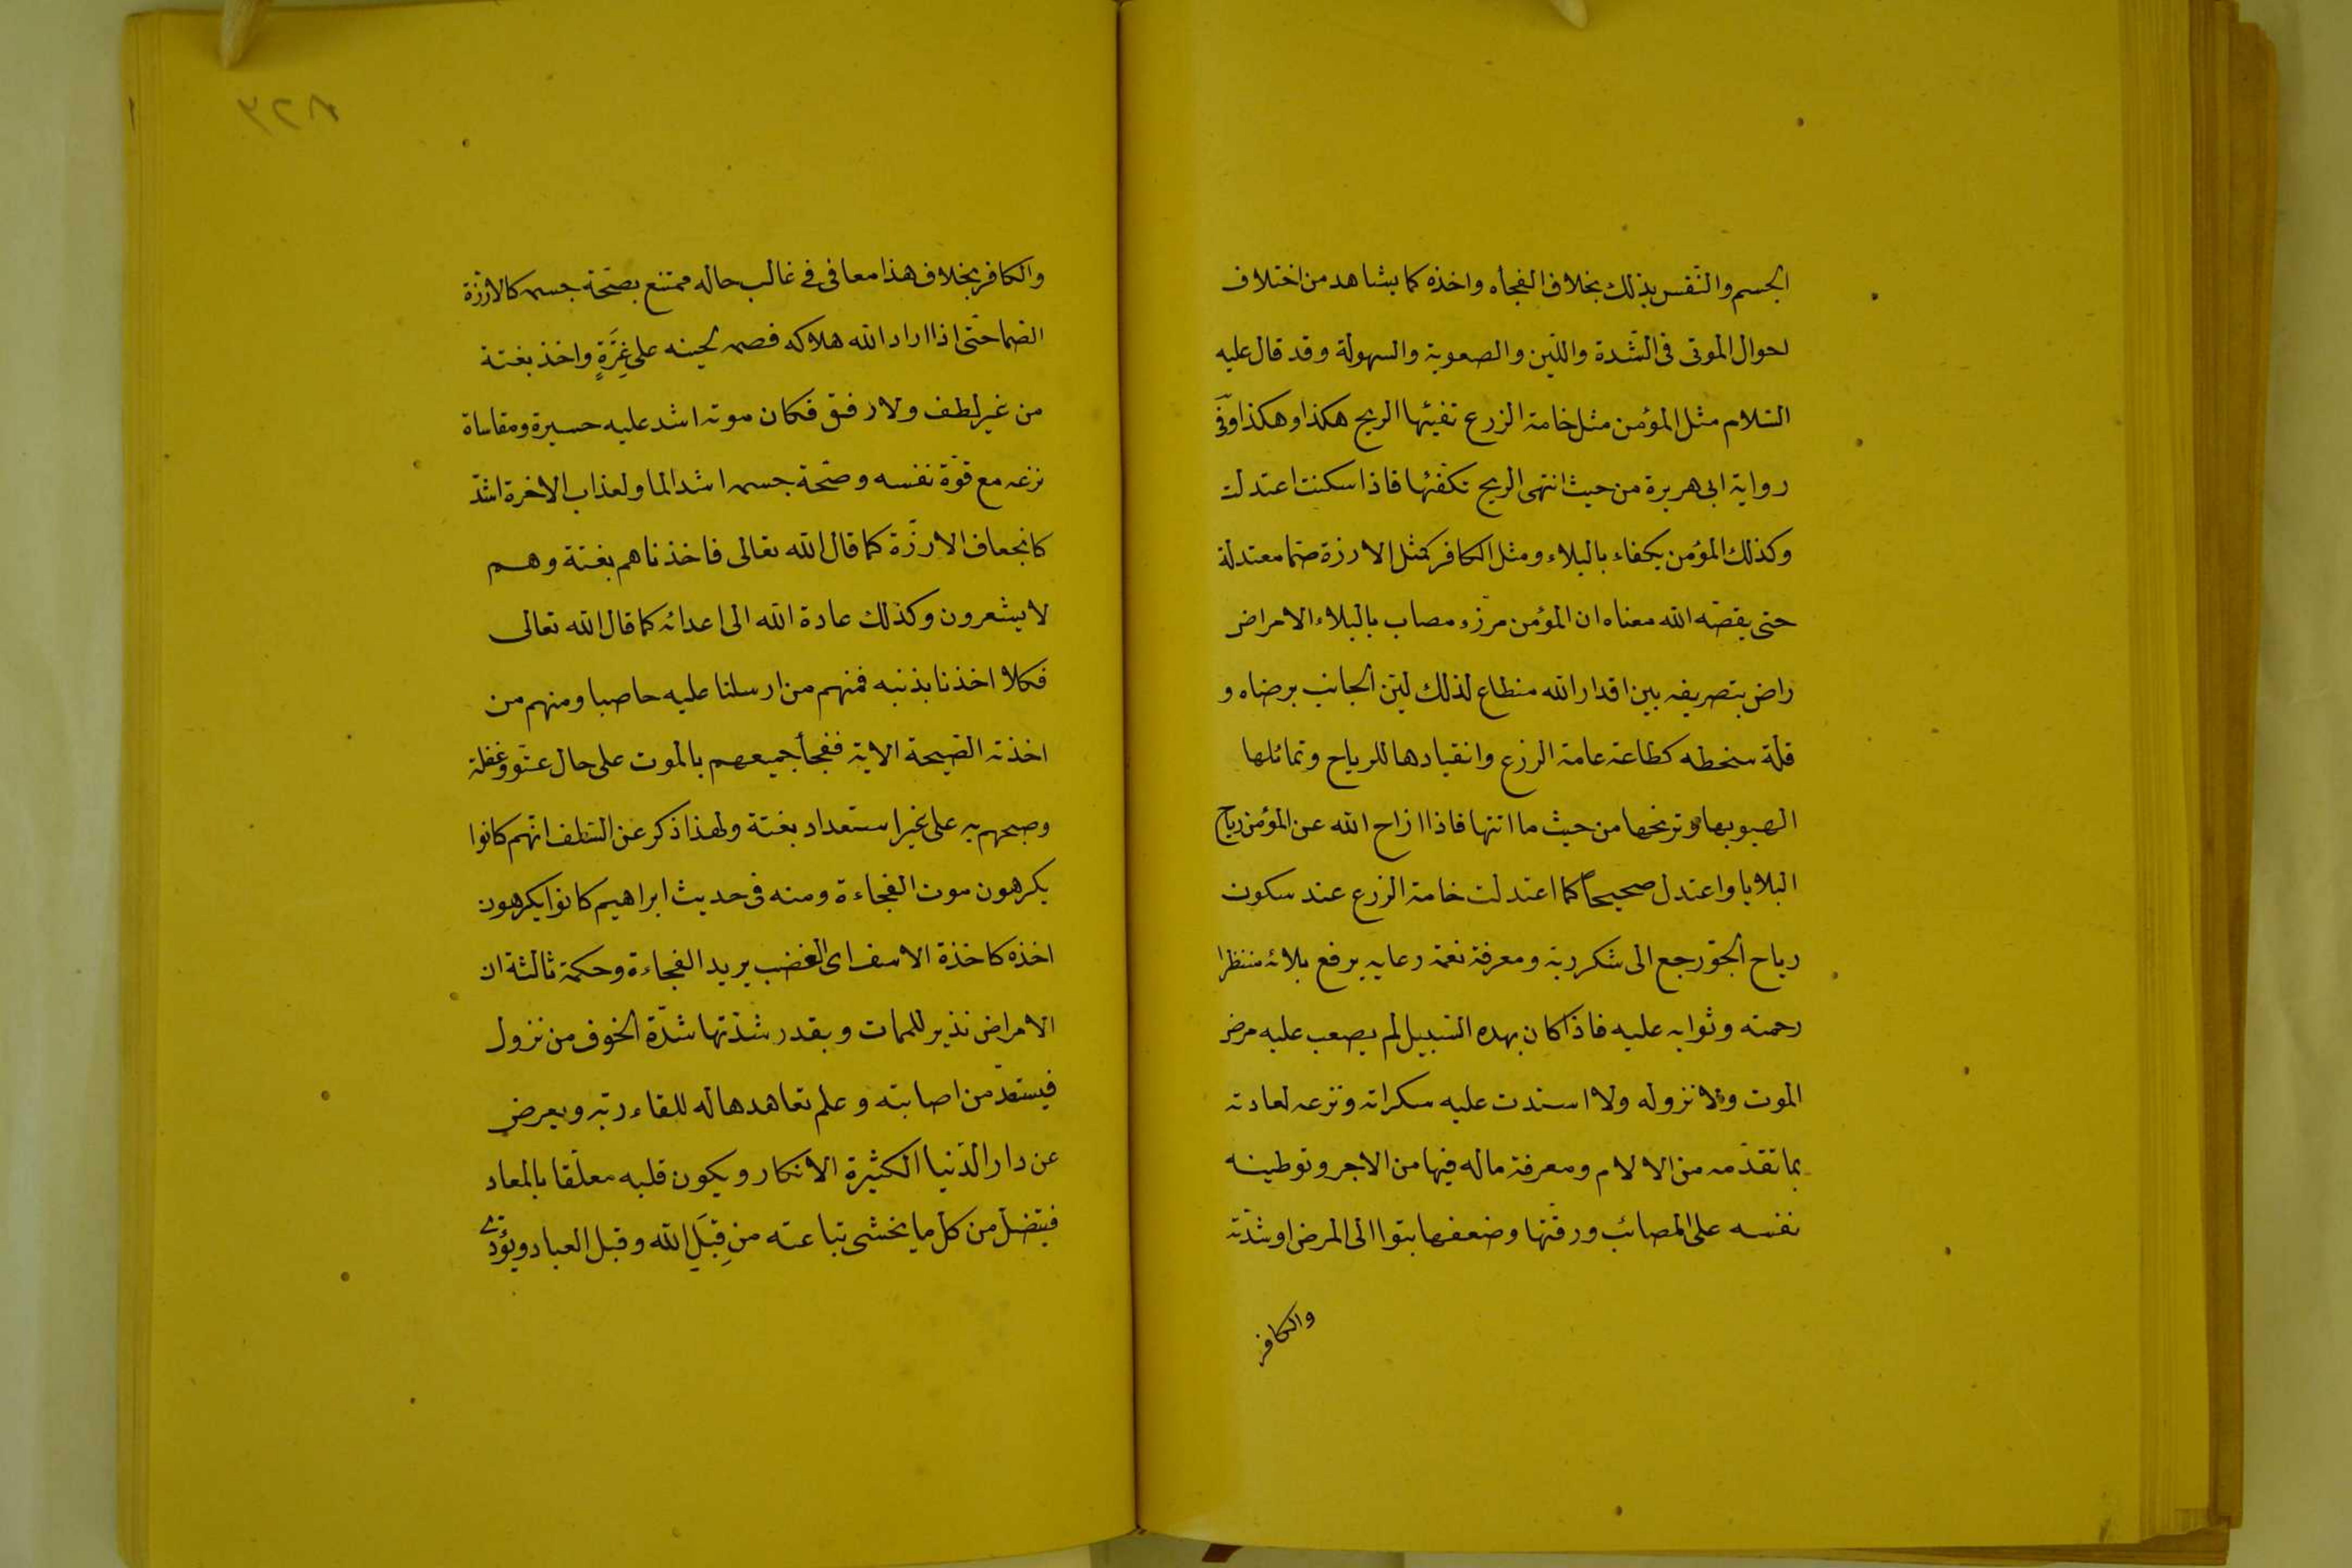 الجسم والنّفس بذلك بخلاف الفجأه واخذه كما يشاهد من اختلاف
احوال الموتى فى الشّدة واللّين والصعوبة والسهولة وقد قال عليه
السّلام مثل المؤمن مثل خامة الزرع تفيئها الريح هكذا وهكذا وفى
رواية ابى هريرة من حيث انتهى الريح تكفّئها فاذا سكنت اعتدلت
وكذلك المؤمن يكفاء بالبلاء ومثل الكافر كمثل الارزة صمّا معتدلة
حتى يقصّه الله معناه ان المؤمن مرزء مصاب بالبلاء الامراض
راض بتصريفه بين اقدار الله منطاع لذلك ليّن الجانب برضاه و
قلّة سنخطه كطاعة عامة الزرع وانقيادها للرياح وتمائلها
الهبوبها وترنّحها من حيث ما انتها فاذا ازاح الله عن المؤمن رياح
البلايا واعتدل صحيحاً كما اعتدلت خامة الزرع عند سكون
رياح الجوّ رجع الى شكر ربّه ومعرفة نعمة رعايه برفع بلائه منتظرا
رحمته وثوابه عليه فاذا كان بهده السّبيل لم يصعب عليه مرض
الموت ولا نزوله ولا استدت عليه سكراته ونزعه لعادته
بما تقدّمه من الالام ومعرفة ماله فيها من الاجر وتوطينه
نفسه على المصائب ورقّتها وضعفها بتوا الى المرض او شدّته
والكافر
والكافر بخلاف هذا معافى فى غالب حاله ممتنع بصحّة جسمه كالارزّة
الصّما حتّى اذا اراد الله هلاكه قصمه لحينه على غِرَّةٍ واخذ بغتة
من غير لطف ولا رفق فكان موته اشد عليه حسيرة ومقاساة
نزعه مع قوّة نفسه وصحّة جسمه اشد الما ولعذاب الاخرة اشدّ
كانجعاف الارزّة كما قال الله تعالى فاخذناهم بغتة وهم
لا يشعرون وكذلك عادة الله الى اعدائه كما قال الله تعالى
فكلا اخذنا بذنبه فمنهم من ارسلنا عليه حاصبا ومنهم من
اخذته الصّيحة الاية ففجأ جميعهم بالموت على حال عتّو وغفلة
وصبحهم به على غير استعداد بغتة ولهذا ذكر عن السّلف انّهم كانوا
يكرهون موت الفجاءة ومنه فى حديث ابراهيم كانوا يكرهون
اخذه كاخذة الاسف اى الغضب يريد الفجاءة وحكمة ثالثة ان
الامراض نذير للممات وبقدر شدّتها شدّة الخوف من نزول
فيستعدّ من اصابته وعلم تعاهدها له للقاء ربّه ويعرض
عن دار الدّنيا الكثيرة الانكار ويكون قلبه معلّقا بالمعاد
فيتضلّ من كلّ ما يخشى تباعته من قِبَلِ الله وقبل العباد ويؤدّى